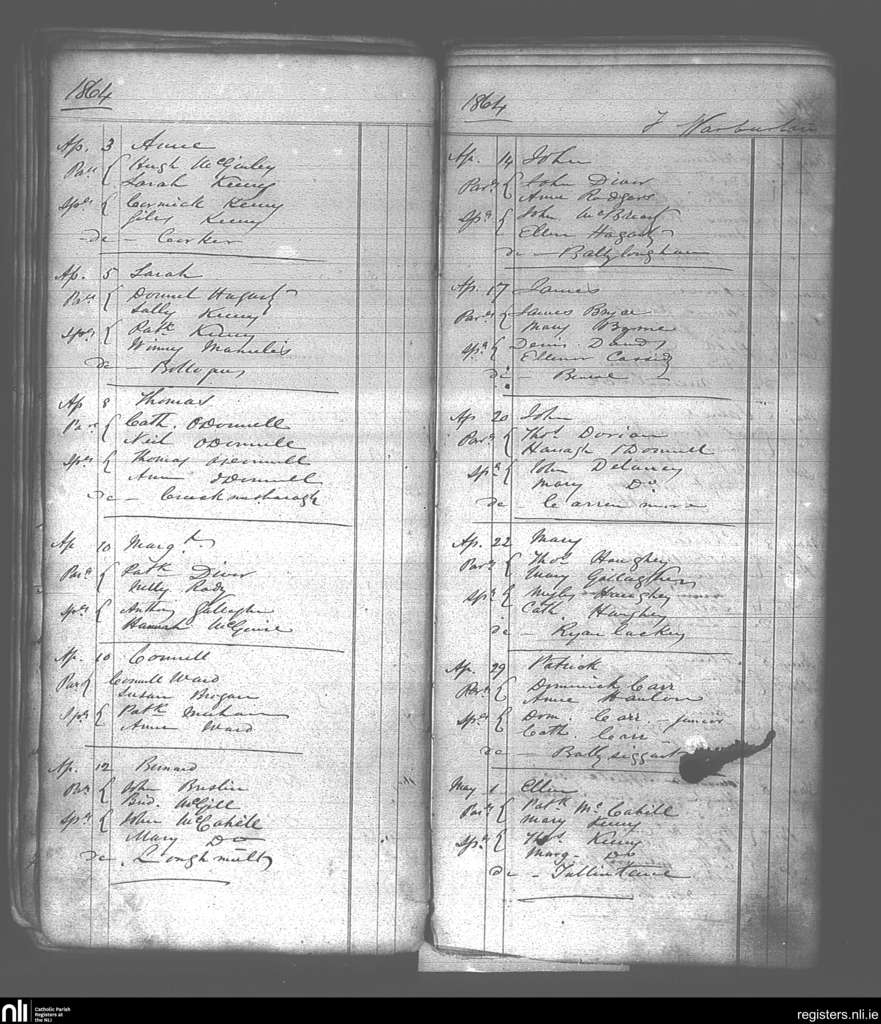 1864
Ap. 3 Anne
Par. { Hugh McGinley
Sarah Keeny
Sprs { Cormick Keeny
Giley Keeny
de - Corker
Ap. 5 Sarah
Pars { Donnel Hagarty
Sally Keeny
Sprs { Patk Keeny
Winny
de -
Ap 8 Thomas
Par { Cath. ODonnell
Neil ODonnell
Sprs { Thomas ODonnell
Ann ODonnell
de -
Ap 10 Margt
Pars { Patk Diver
Nelly Rody
Sprs { Anthony Gallagher
Hannah McGuire
Ap. 10 Connell
Par { Connell Ward
Susan Brogan
Sprs { Patk Meehan
Anne Ward
Ap. 12 Bernard
Prs { John Breslin
Brid. McGill
Sprs { John McCahill
Mary Do
de - Loughmult
1864
F Warburton
Ap. 14 John
Pars { John Diver
Anne Rodgers
Sprs { John McBrearty
Ellen Hagarty
de -
Ap. 17 James
Pars { James Boyce
Mary Byrne
Sprs { Denis
Ellenor Cassidy
de -
Ap 20 John
Pars { Thos Dorian
Hanagh ODonnell
Sprs { John Delaney
Mary Do
de -
Ap. 22 Mary
Pars { Thos Haughey
Mary Gallagher
Sprs { Haughey
Cath Haughey
de -
Ap. 29 Patrick
Pars { Dominick Carr
Anne Hanlon
Sprs { Dom. Carr - junior
Cath. Carr -
de - Ballysiggart
May 1 Ellen
Pars { Patk McCahill
Mary Keeny
Sprs { Thos Keeny
Marg. Do
de -
nli Catholic Parish
Registers at
the NLI
registers.nli.ie